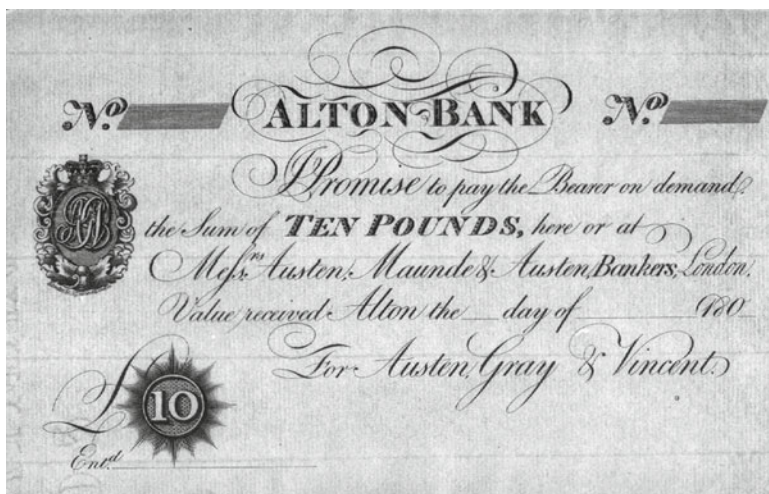 No. ALTON BANK No.
I Promise to pay the Bearer on demand
the Sum of TEN POUNDS, here or at
Messrs Austen, Maunde & Austen, Bankers, London,
Value received Alton the day of 180
For Austen, Gray & Vincent.
£10
Entd.